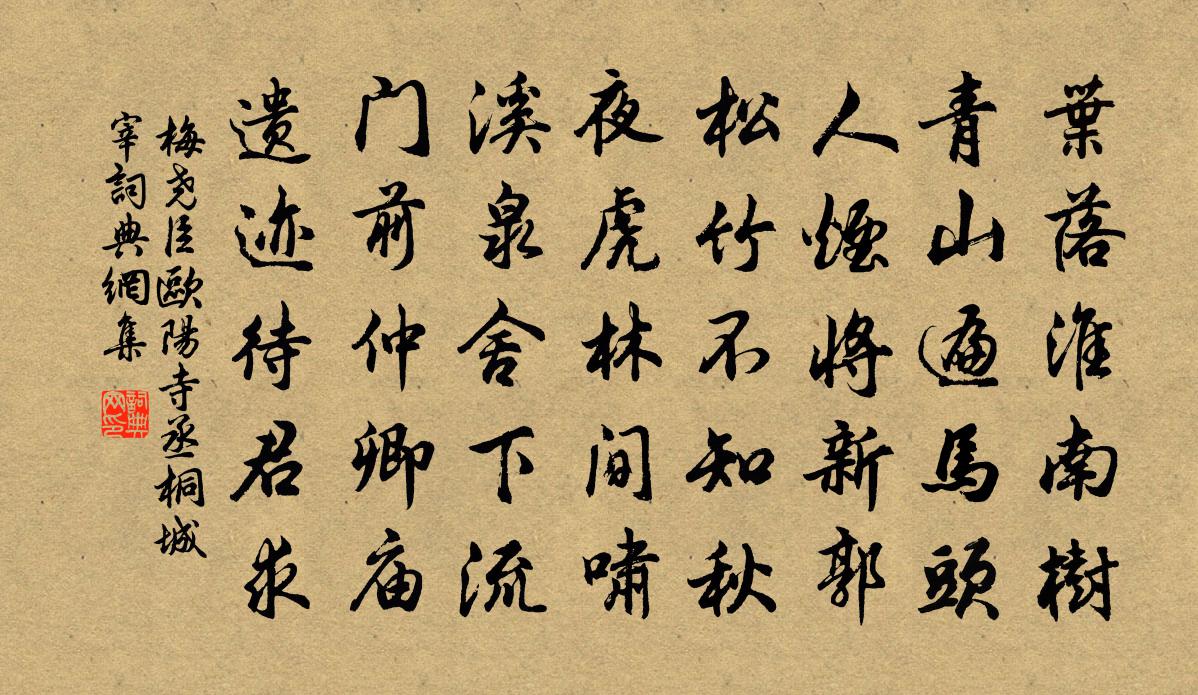 葉落淮南樹
青山遍馬頭
人煙將新郭
松竹不知秋
夜虎林间啸
溪泉舍下流
门前仲卿庙
遗迹待君求
梅尧臣歐陽寺丞桐城
宰詞典網集
詞典
网印